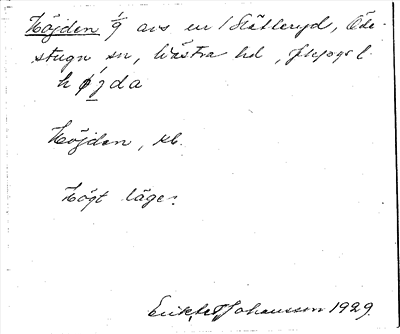 Höjden 1/9 avs en / Slätteryd, Öde-
stugu sn, Västra hd, Jkpgs l.
h ø j d a
Höjden, kb.
Högt läge.
Johansson 1929